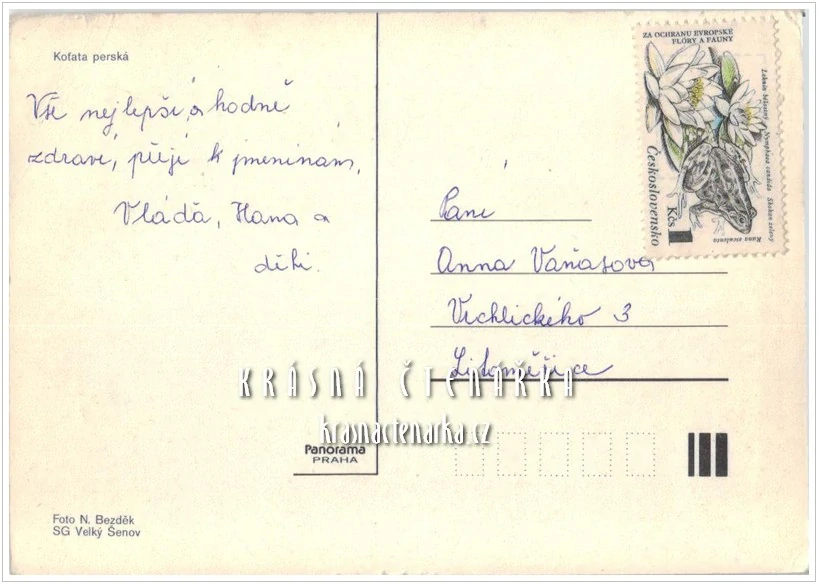 Koťata perská
Vše nejlepší, a hodně
zdraví, přejí k jmeninám,
Vláďa, Hana a
děti.
ZA OCHRANU EVROPSKÉ
FLÓRY A FAUNY
Leknín bělostný Nymphaea candida Skokan zelený
Rana esculenta
Československo
Kčs 1
Paní
Anna Vaňasová
Vrchlického 3
Litoměřice
KRÁSNÁ ČTENÁŘKA
krasnactenarka.cz
Panorama
PRAHA
Foto N. Bezděk
SG Velký Šenov